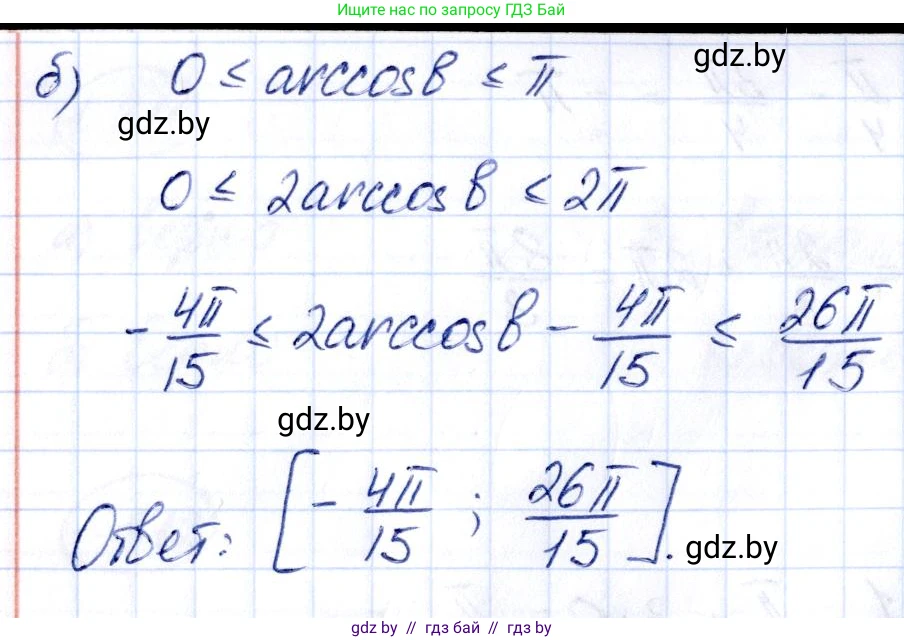 Ищите нас по запросу ГДЗ Бай
б) 0 ≤ arccos b ≤ π
gdz.by
gdz.by
0 ≤ 2arccos b ≤ 2π
-4π/15 ≤ 2arccos b - 4π/15 ≤ 26π/15
gdz.by
Ответ: [-4π/15; 26π/15].
gdz.by
gdz.by // гдз бай // гдз by